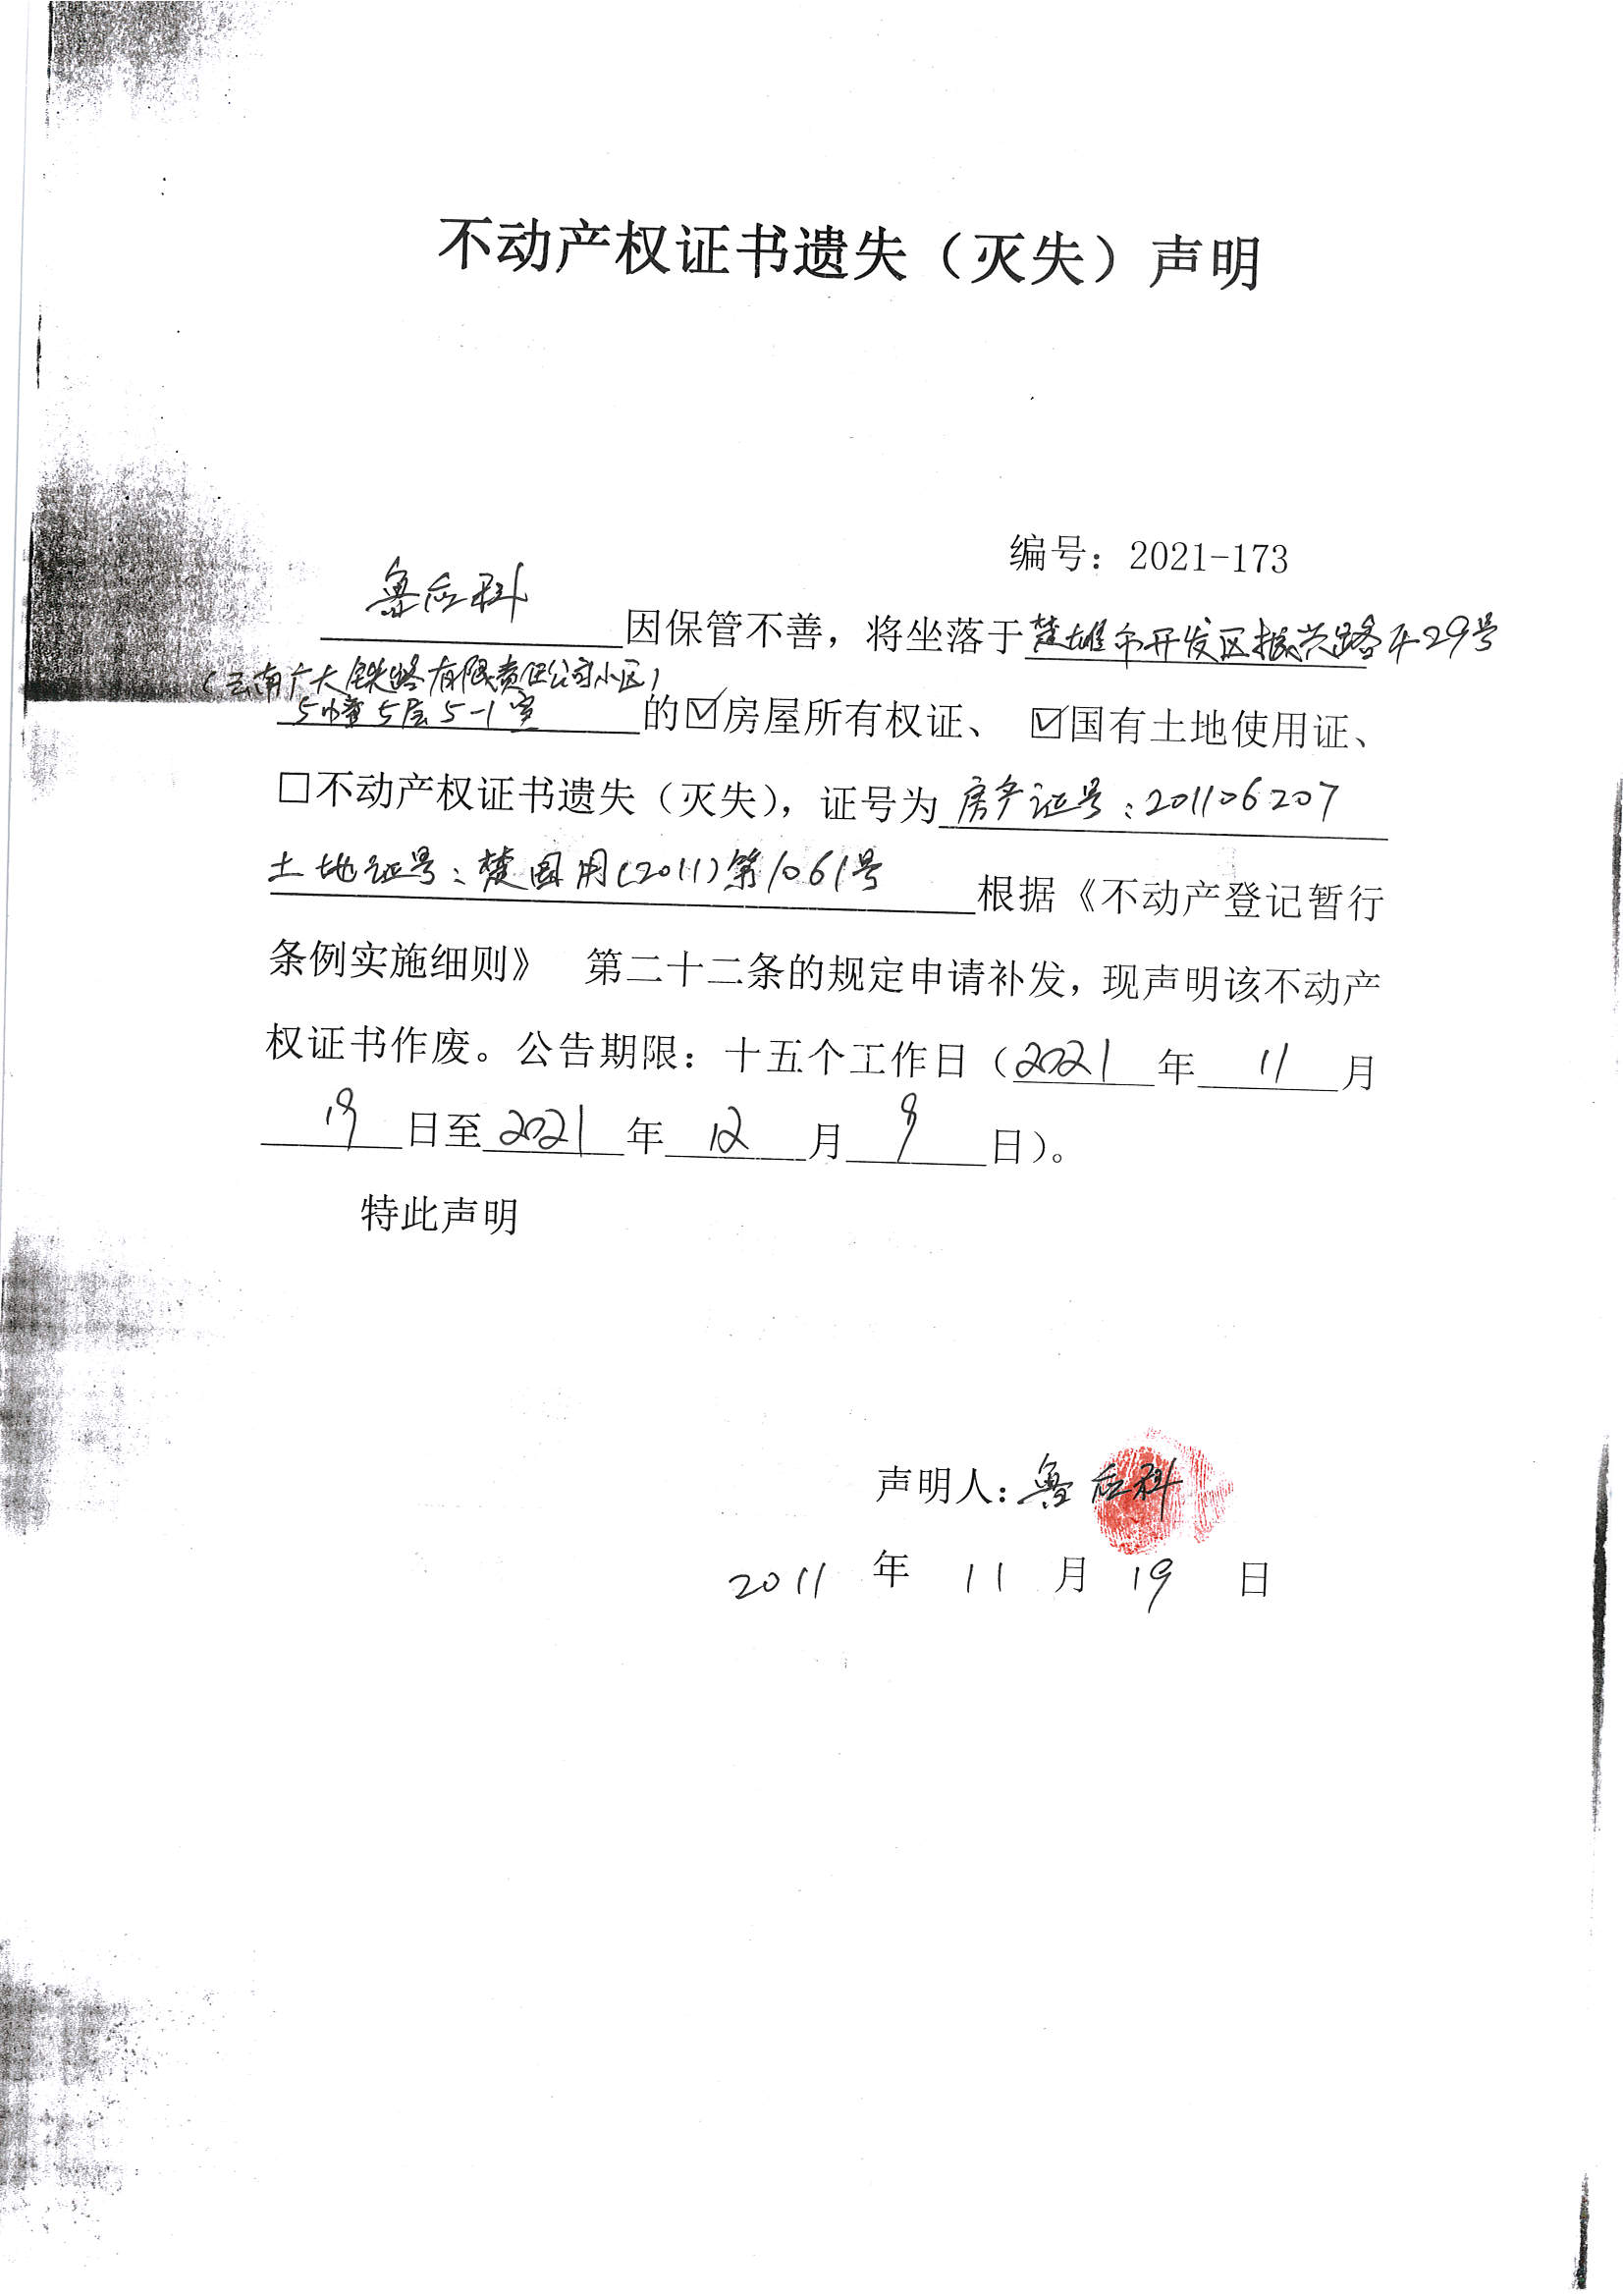 不动产权证书遗失（灭失）声明
编号：2021-173
鲁应科因保管不善，将坐落于楚雄市开发区振兴路平29号
（云南广大铁路有限责任公司小区）
5幢5层5-1室的☑房屋所有权证、 ☑国有土地使用证、
□不动产权证书遗失（灭失），证号为房产证号：201106207
土地证号：楚国用(2011)第1061号根据《不动产登记暂行
条例实施细则》 第二十二条的规定申请补发，现声明该不动产
权证书作废。公告期限：十五个工作日（2021年11月
19日至2021年12月9日）。
特此声明
声明人：鲁应科
2011年11月19日